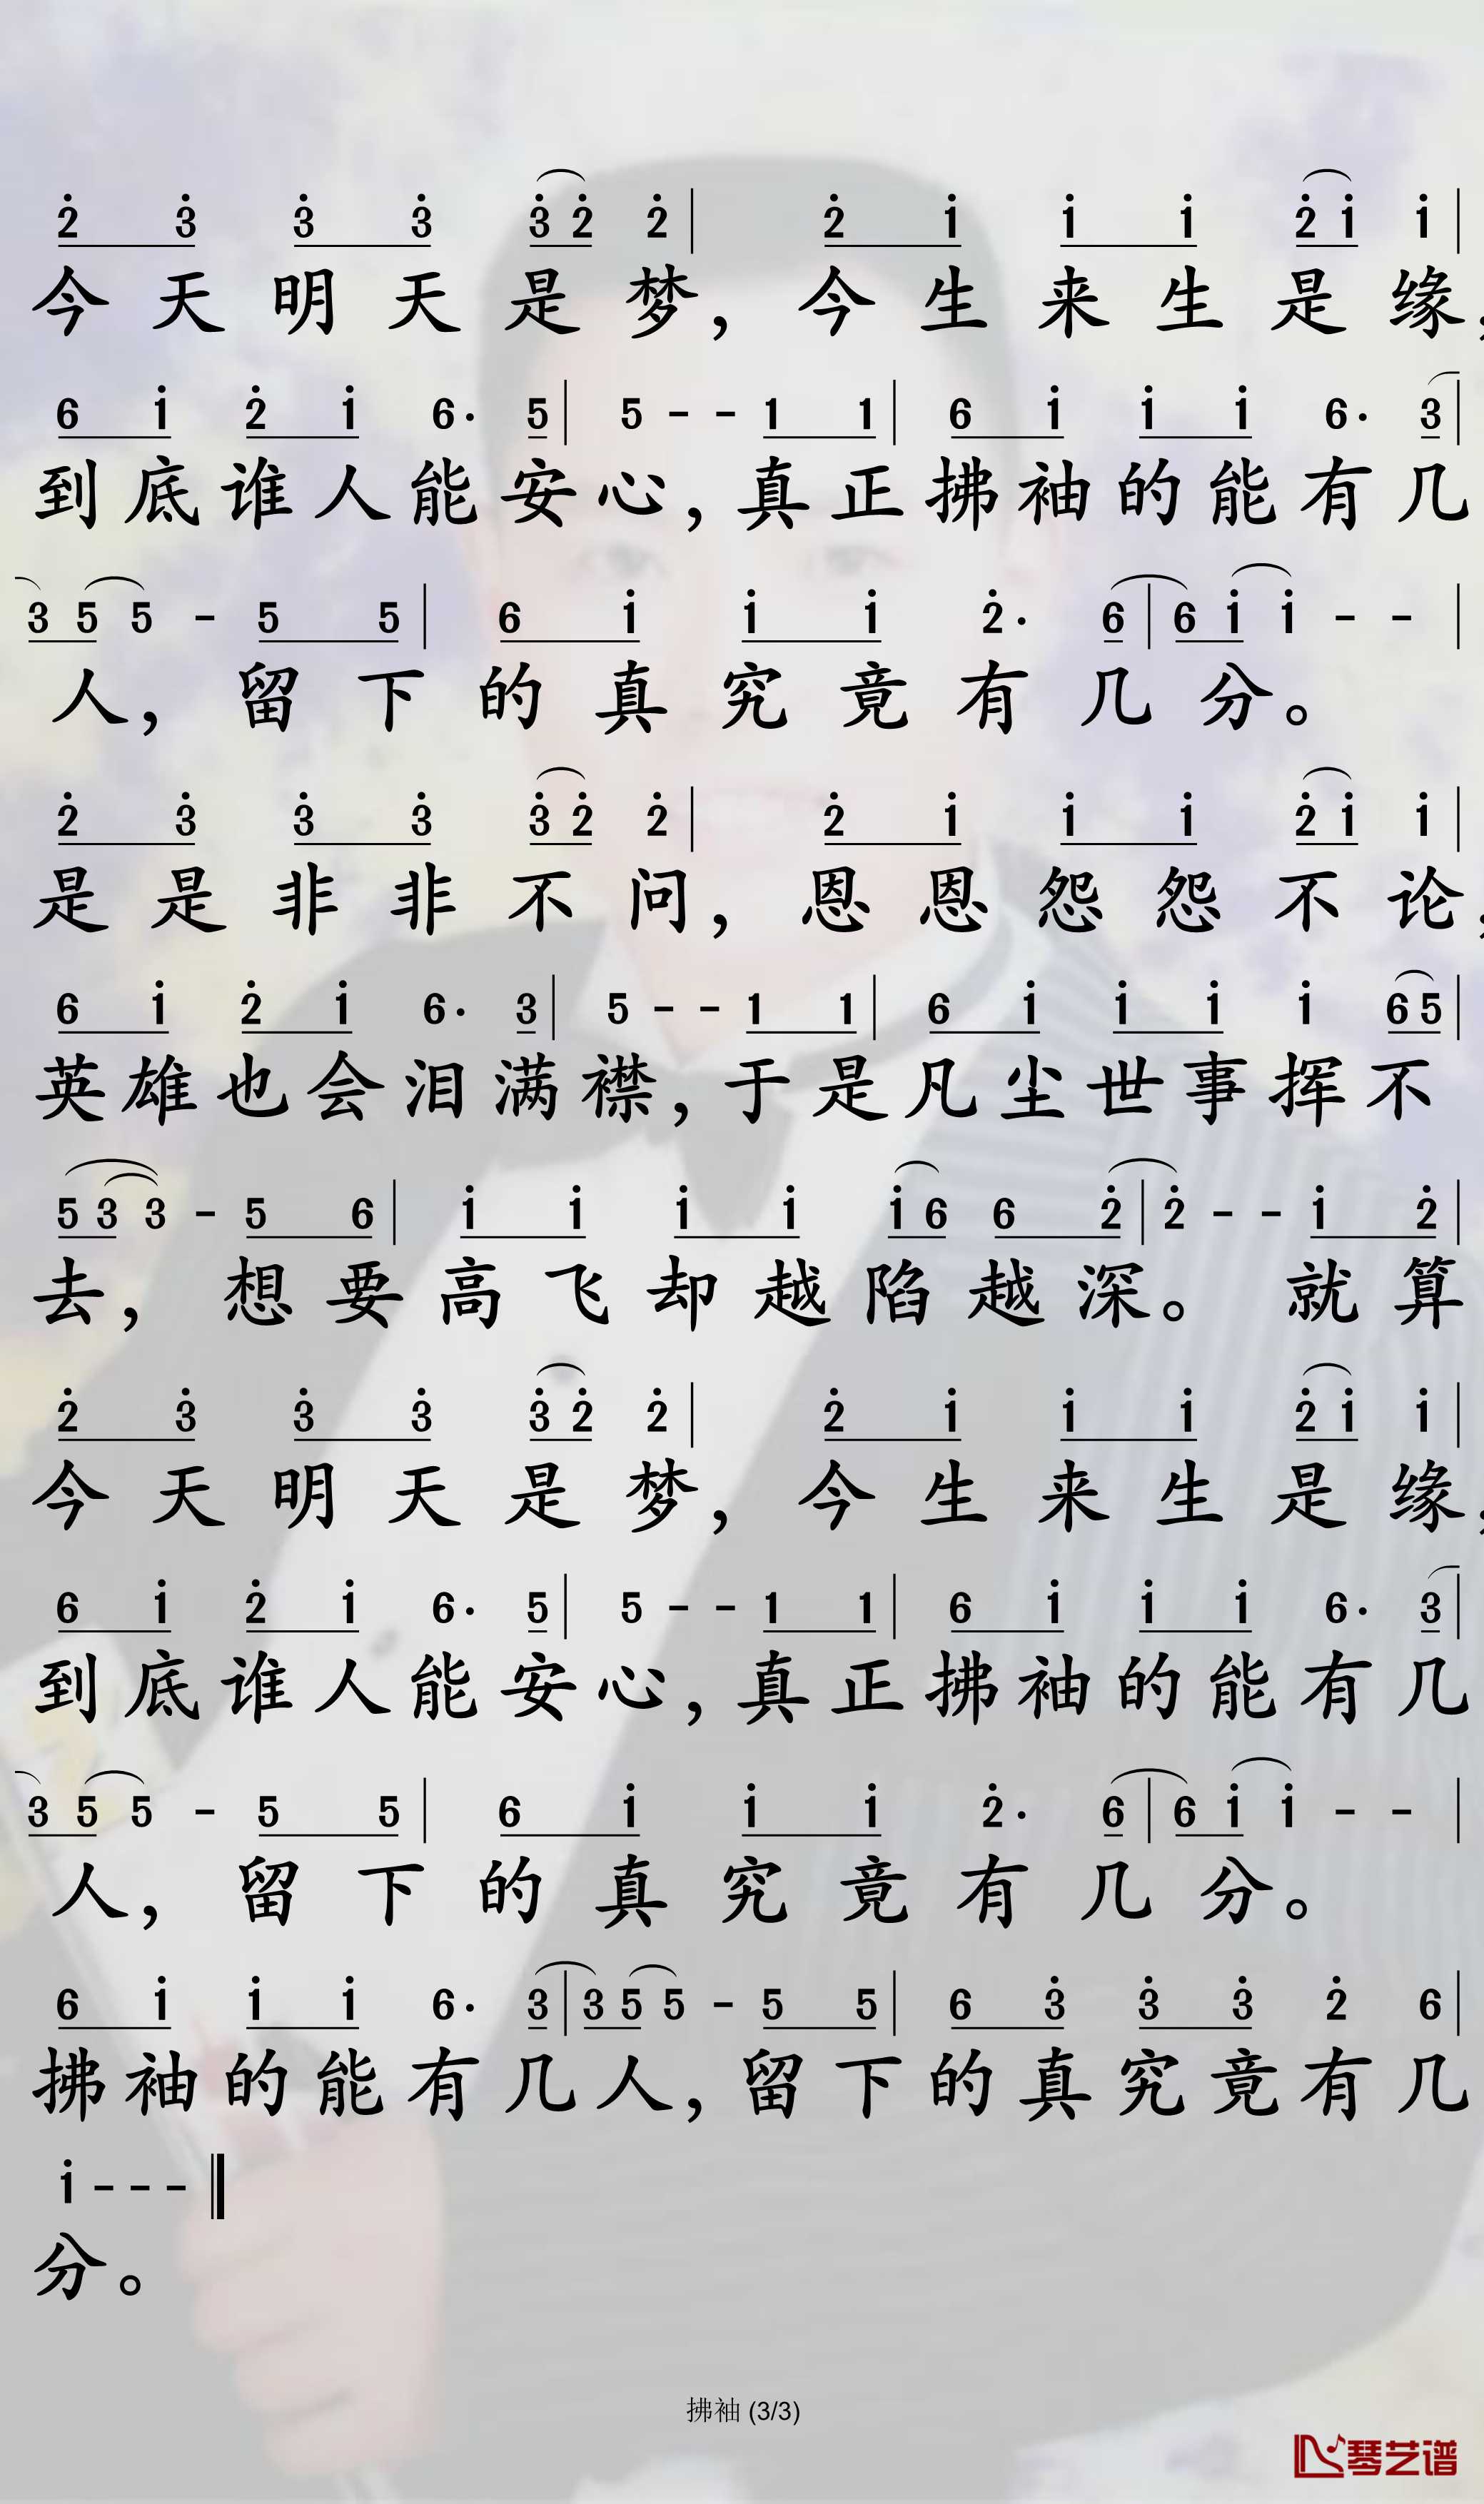 2̇ 3̇ 3̇ 3̇ 3̇ 2̇ 2̇ | 2̇ 1̇ 1̇ 1̇ 2̇ 1̇ 1̇ |
今天明天是梦，今生来生是缘，
6 1̇ 2̇ 1̇ 6· 5 | 5 - - 1 1 | 6 1̇ 1̇ 1̇ 6· 3 |
到底谁人能安心，真正拂袖的能有几
3 5 5 - 5 5 | 6 1̇ 1̇ 1̇ 2̇· 6 | 6 1̇ 1̇ - - |
人，留下的真究竟有几分。
2̇ 3̇ 3̇ 3̇ 3̇ 2̇ 2̇ | 2̇ 1̇ 1̇ 1̇ 2̇ 1̇ 1̇ |
是是非非不问，恩恩怨怨不论，
6 1̇ 2̇ 1̇ 6· 3 | 5 - - 1 1 | 6 1̇ 1̇ 1̇ 1̇ 6 5 |
英雄也会泪满襟，于是凡尘世事挥不
5 3 3 - 5 6 | 1̇ 1̇ 1̇ 1̇ 1̇ 6 6 2̇ | 2̇ - - 1̇ 2̇ |
去，想要高飞却越陷越深。就算
2̇ 3̇ 3̇ 3̇ 3̇ 2̇ 2̇ | 2̇ 1̇ 1̇ 1̇ 2̇ 1̇ 1̇ |
今天明天是梦，今生来生是缘，
6 1̇ 2̇ 1̇ 6· 5 | 5 - - 1 1 | 6 1̇ 1̇ 1̇ 6· 3 |
到底谁人能安心，真正拂袖的能有几
3 5 5 - 5 5 | 6 1̇ 1̇ 1̇ 2̇· 6 | 6 1̇ 1̇ - - |
人，留下的真究竟有几分。
6 1̇ 1̇ 1̇ 6· 3 | 3 5 5 - 5 5 | 6 3̇ 3̇ 3̇ 2̇ 6 |
拂袖的能有几人，留下的真究竟有几
1̇ - - - ‖
分。
拂袖 (3/3)
琴艺谱